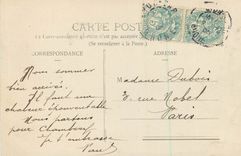 CARTE POSTALE
(Se renseigner à la Poste)
CORRESPONDANCE
ADRESSE
Nous sommes
bien arrivés.
Il fait une
chaleur épouvantable
Nous partons
pour Chambéry
Je t'embrasse
Madame Dubois
3, rue Nobel
Paris